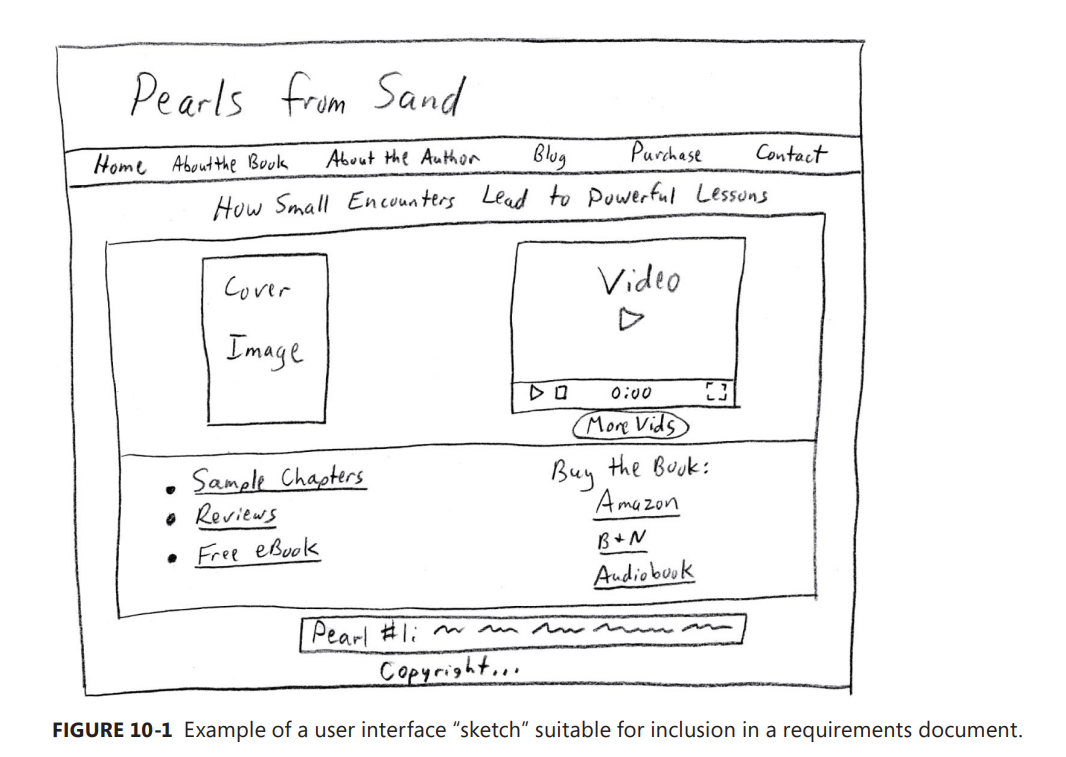 Pearls from Sand
Home About the Book About the Author Blog Purchase Contact
How Small Encounters Lead to Powerful Lessons
Cover
Image
Video
0:00
More Vids
Sample Chapters
Reviews
Free eBook
Buy the Book:
Amazon
B+N
Audiobook
Pearl #1:
Copyright...
FIGURE 10-1 Example of a user interface “sketch” suitable for inclusion in a requirements document.